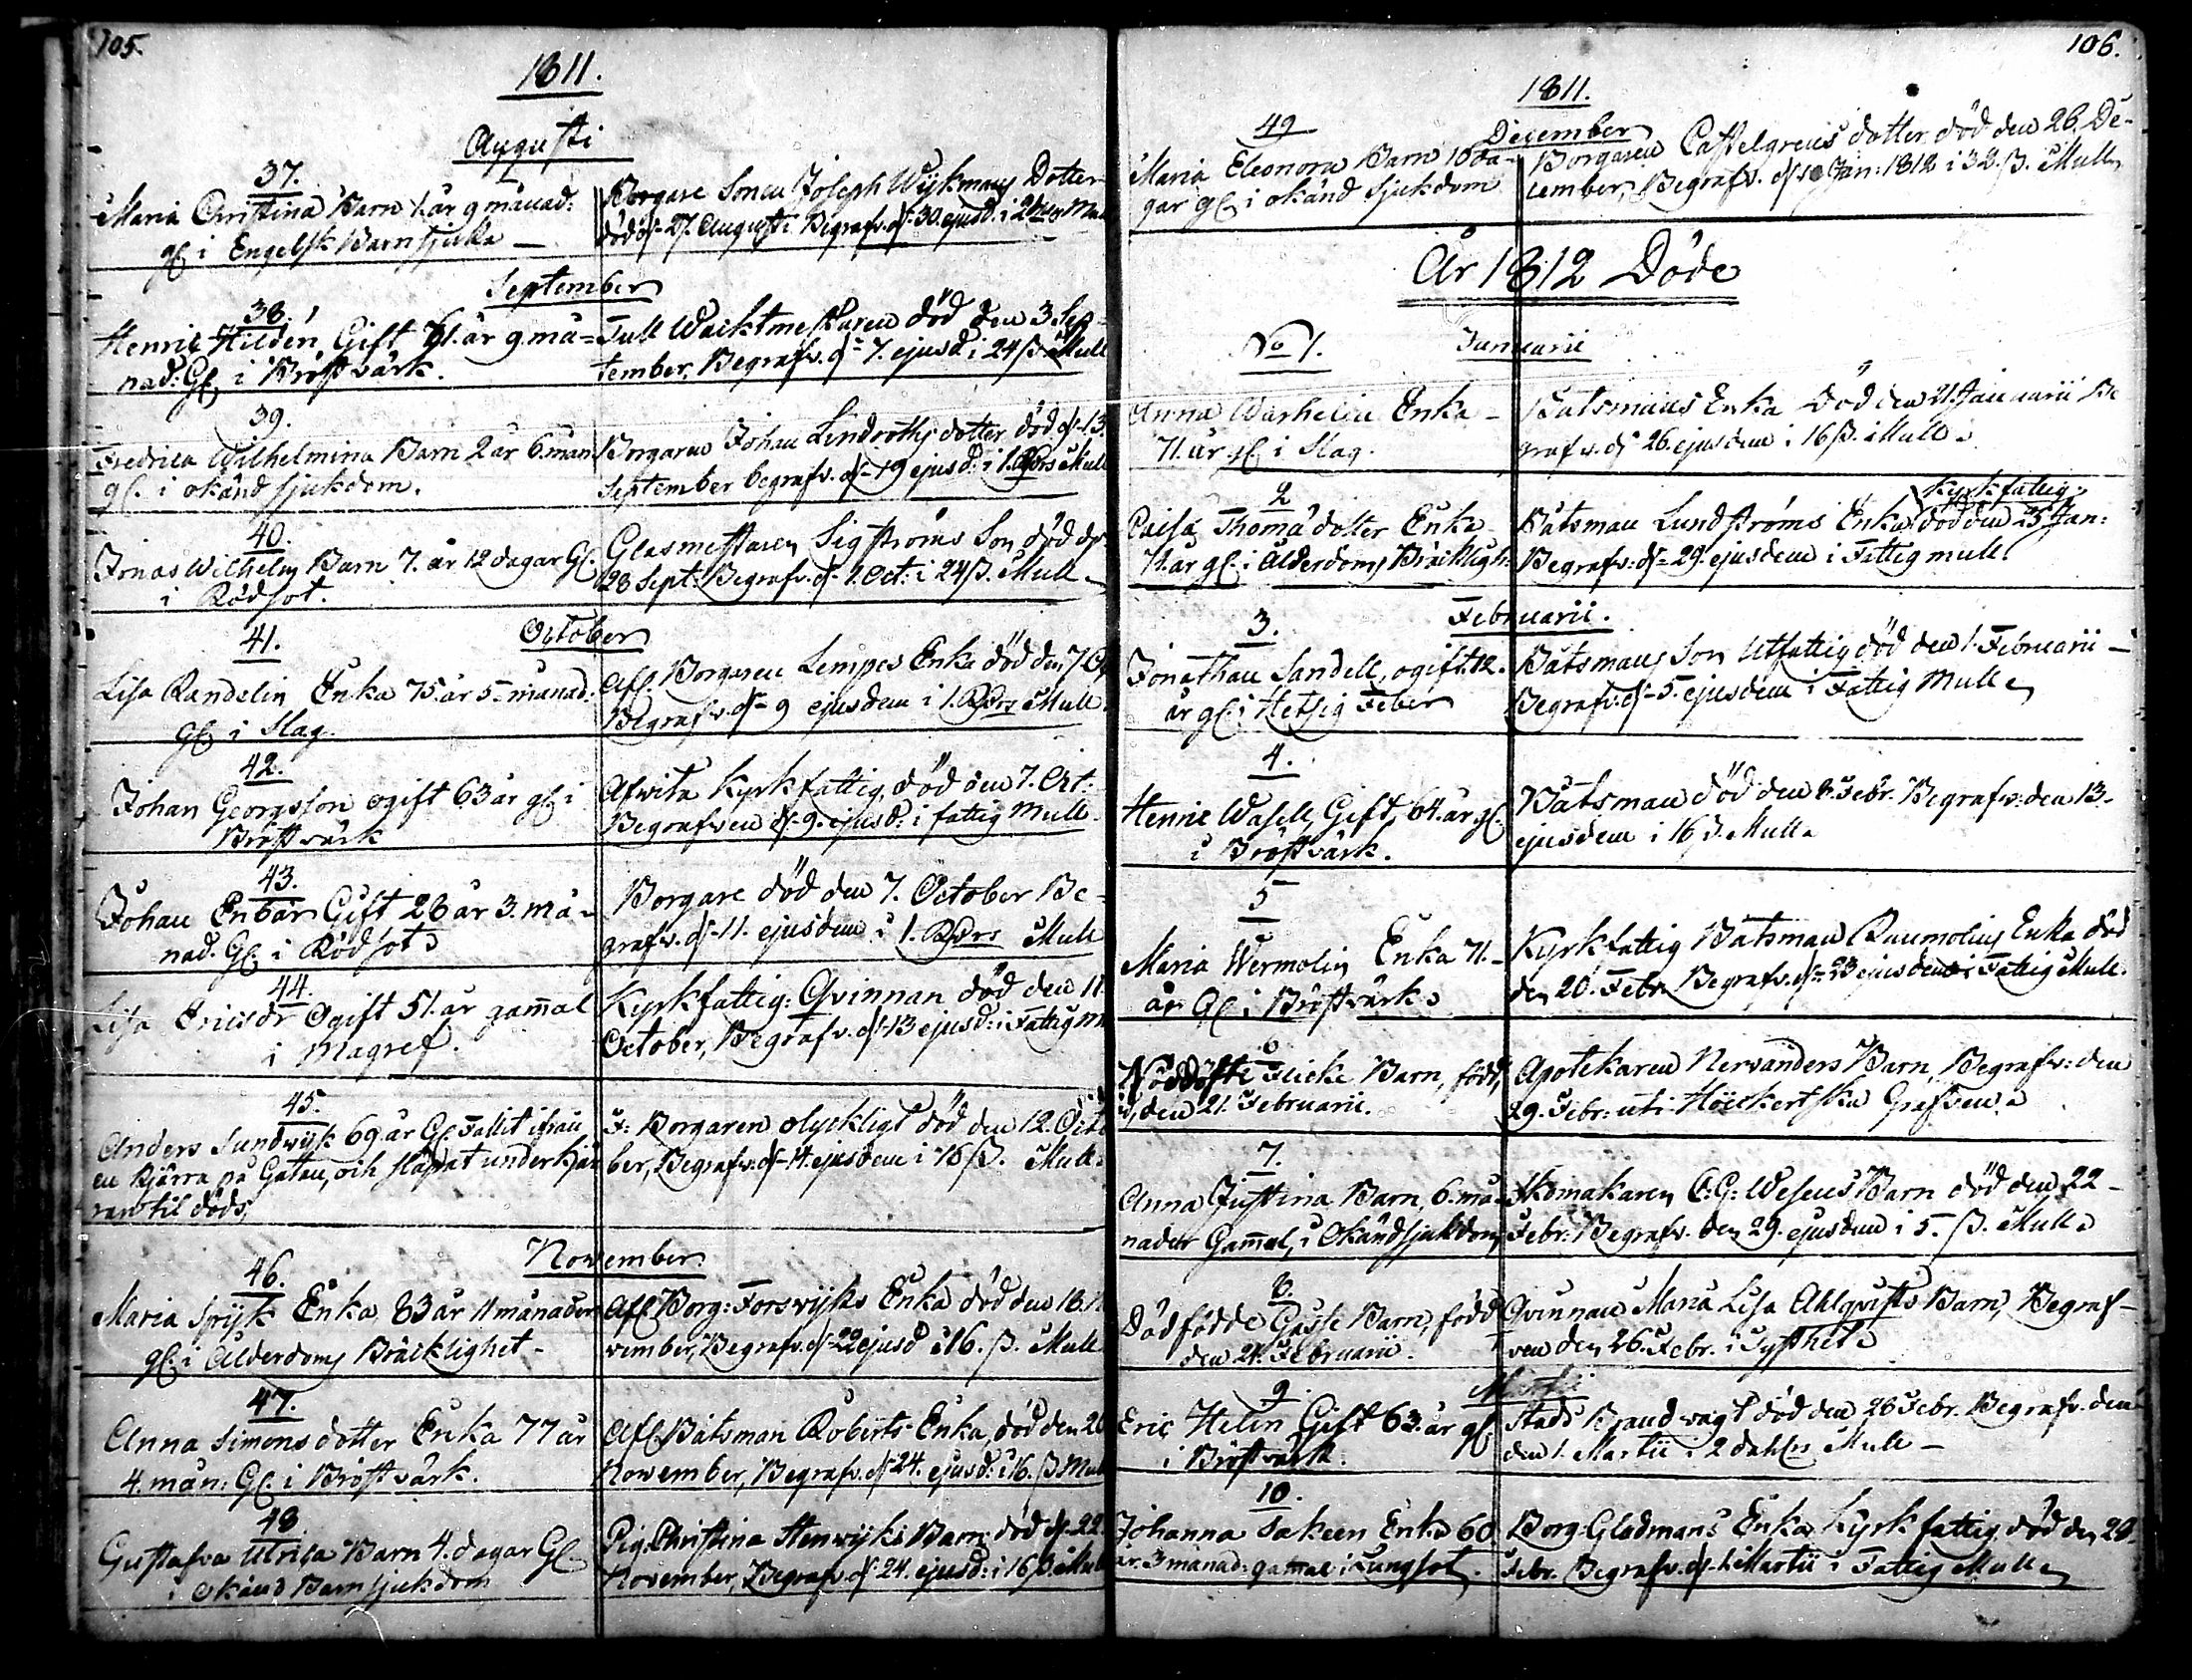 105.
1811.
Augusti
37.
Maria Christina Barn 1. år 9 månad:
gl. i Engelsk Barnsjuka
Borgare Sonen Joseph Wijkmans Dotter
död d. 27. Augusti Begrafv. d. 30. ejusd. i
September
38.
Henric Hildén, Gift 61. år 9. må-
nad: Gl. i Bröstvärk.
Tull Wacktmestaren död den 3 Sep-
tember. Begrafv. d. 7. ejusd. i 24 ß Mull
39.
Fredrica Wilhelmina Barn 2 år 6. mån.
gl. i okänd sjukdom.
Borgaren Johan Lindroths dotter död d. 13.
September begrafv. d. 19 ejusd: i 1. Rdrs Mull
40.
Jonas Wilhelm Barn 7. år 12 dagar Gl.
i Rödsot.
Glasmestaren Sigströms Son död d.
28 Sept: Begrafv. d. 1. Oct: i 24 ß. Mull
October
41.
Lisa Randelin Enka 75. år 5. månad:
Gl. i Slag.
Afl. Borgaren Lempes Enka död den 7 Oc
Begrafv. d. 9 ejusdem i 1. Rdrs Mull.
42.
Johan Georgsson ogift 63 år gl. i
Bröstvärk
Afwita Kyrkfattig, död den 7. Oct:
Begrafven d. 9. ejusd: i fattig Mull.
43.
Johan Enbär Gift 28 år 3. må-
nad. Gl. i Rödsot
Borgare död den 7. October Be-
grafv. d. 11. ejusdem i 1. Rdrs Mull
44.
Lisa Ericsdr Ogift 51. år gam̄al
i Magref.
Kyrkfattig: Qvinnan död den 11
October, Begrafv. d. 13 ejusd: i Fattig M
45.
Anders Sundwijk 69 år Gl. Fallit ifrån
en Kjärra på Gatan, och släpat under Kjär
ran til döds,
F: Borgaren olyckligt död den 12. Octo
ber, Begrafv. d. 14. ejusdem i 16 ß. Mull.
November
46.
Maria Spijk Enka, 83 år 11 månader
gl. i Ålderdoms Bräcklighet
Afl. Borg: Forswijks Enka död den 18. No
vember, Begrafv. d. 22 ejusd i 16. ß. Mull
47.
Anna Simons dotter Enka 77 år
4. mån: Gl. i Bröstvärk.
Afl. Båtsman Roberts Enka, död den 20
November, Begrafv. d. 24. ejusd: i 16. ß Mull
48
Gustafva Ulrica Barn 4. dagar Gl.
i Okänd Barnsjukdom
Pig. Christina Stenwijks Barn död d. 22.
November, Begrafv. d. 24. ejusd: i 16 ß Mull
106.
1811.
49
December
Maria Eleonora Barn 10 da-
gar gl. i okänd Sjukdom
Borgaren Castelgrens dotter död den 26. De-
cember, Begrafv. d. Jan: 1812 i 32. ß. Mull
År 1812 Döde
No 1.
Januarii
Anna Warhelin Enka
71. år gl. i Slag.
Båtsmans Enka Död den 21. Januarii Be
grafv. d. 26. ejusdem i 16 ß. Mull
2
Caisa Thoma dotter Enka
71. år gl. i Ålderdoms Bräckligh:
Kyrkfattig
Båtsman Lundströms Enka död den 25 Jan:
Begrafv: d. 29. ejusdem i Fattig mull.
Februarii.
3.
Jonathan Sandell, ogift 12.
år gl. i Hetsig Feber
Båtsmans Son Utfattig död den 1. Februarii
Begrafv. d. 5. ejusdem i Fattig Mull
4.
Henric Wasell, Gift, 64. år gl.
i Bröstvärk.
Båtsman död den 8. Febr. Begrafv: den 13.
ejusdem i 16 ß. Mull
5
Maria Wermolin Enka 71.
år Gl. i Bröstvärk
Kyrkfattig Båtsman Raumolins Enka död
den 20. Febr. Begrafv. d. 23 ejusdem i Fattig Mull.
6
Nöddöpte Flicke Barn, född,
d, den 21. Februarii.
Apotekaren Nervanders Barn, Begrafv: den
29. Febr: uti Höckertska Grafven
7.
Anna Justina Barn, 6. må-
nader Gam̄al, i Okänd sjukdom
Skomakaren C: G: Wesens Barn död den 22
Febr. Begrafv. den 29. ejusdem i 5. ß. Mull
8.
Dödfödde Gosse Barn, född
den 21. Februarii.
Qvinnan Maria Lisa Ahlqvists Barn, Begraf-
ven den 26. Febr. i Tysthet
Martii
9.
Eric Helin Gift 63. år gl.
i Bröstvärk.
Stads Brandvagt död den 28 Febr. Begrafv. den
den 1. Martii i 2 dahlr Mull
10.
Johanna Sakeen Enka 60
år. 3 månad: gam̄al i Lungsot.
Borg. Gladmans Enka, Kyrkfattig död den 29.
Febr. Begrafv. d. 1. Martii i Fattig Mull